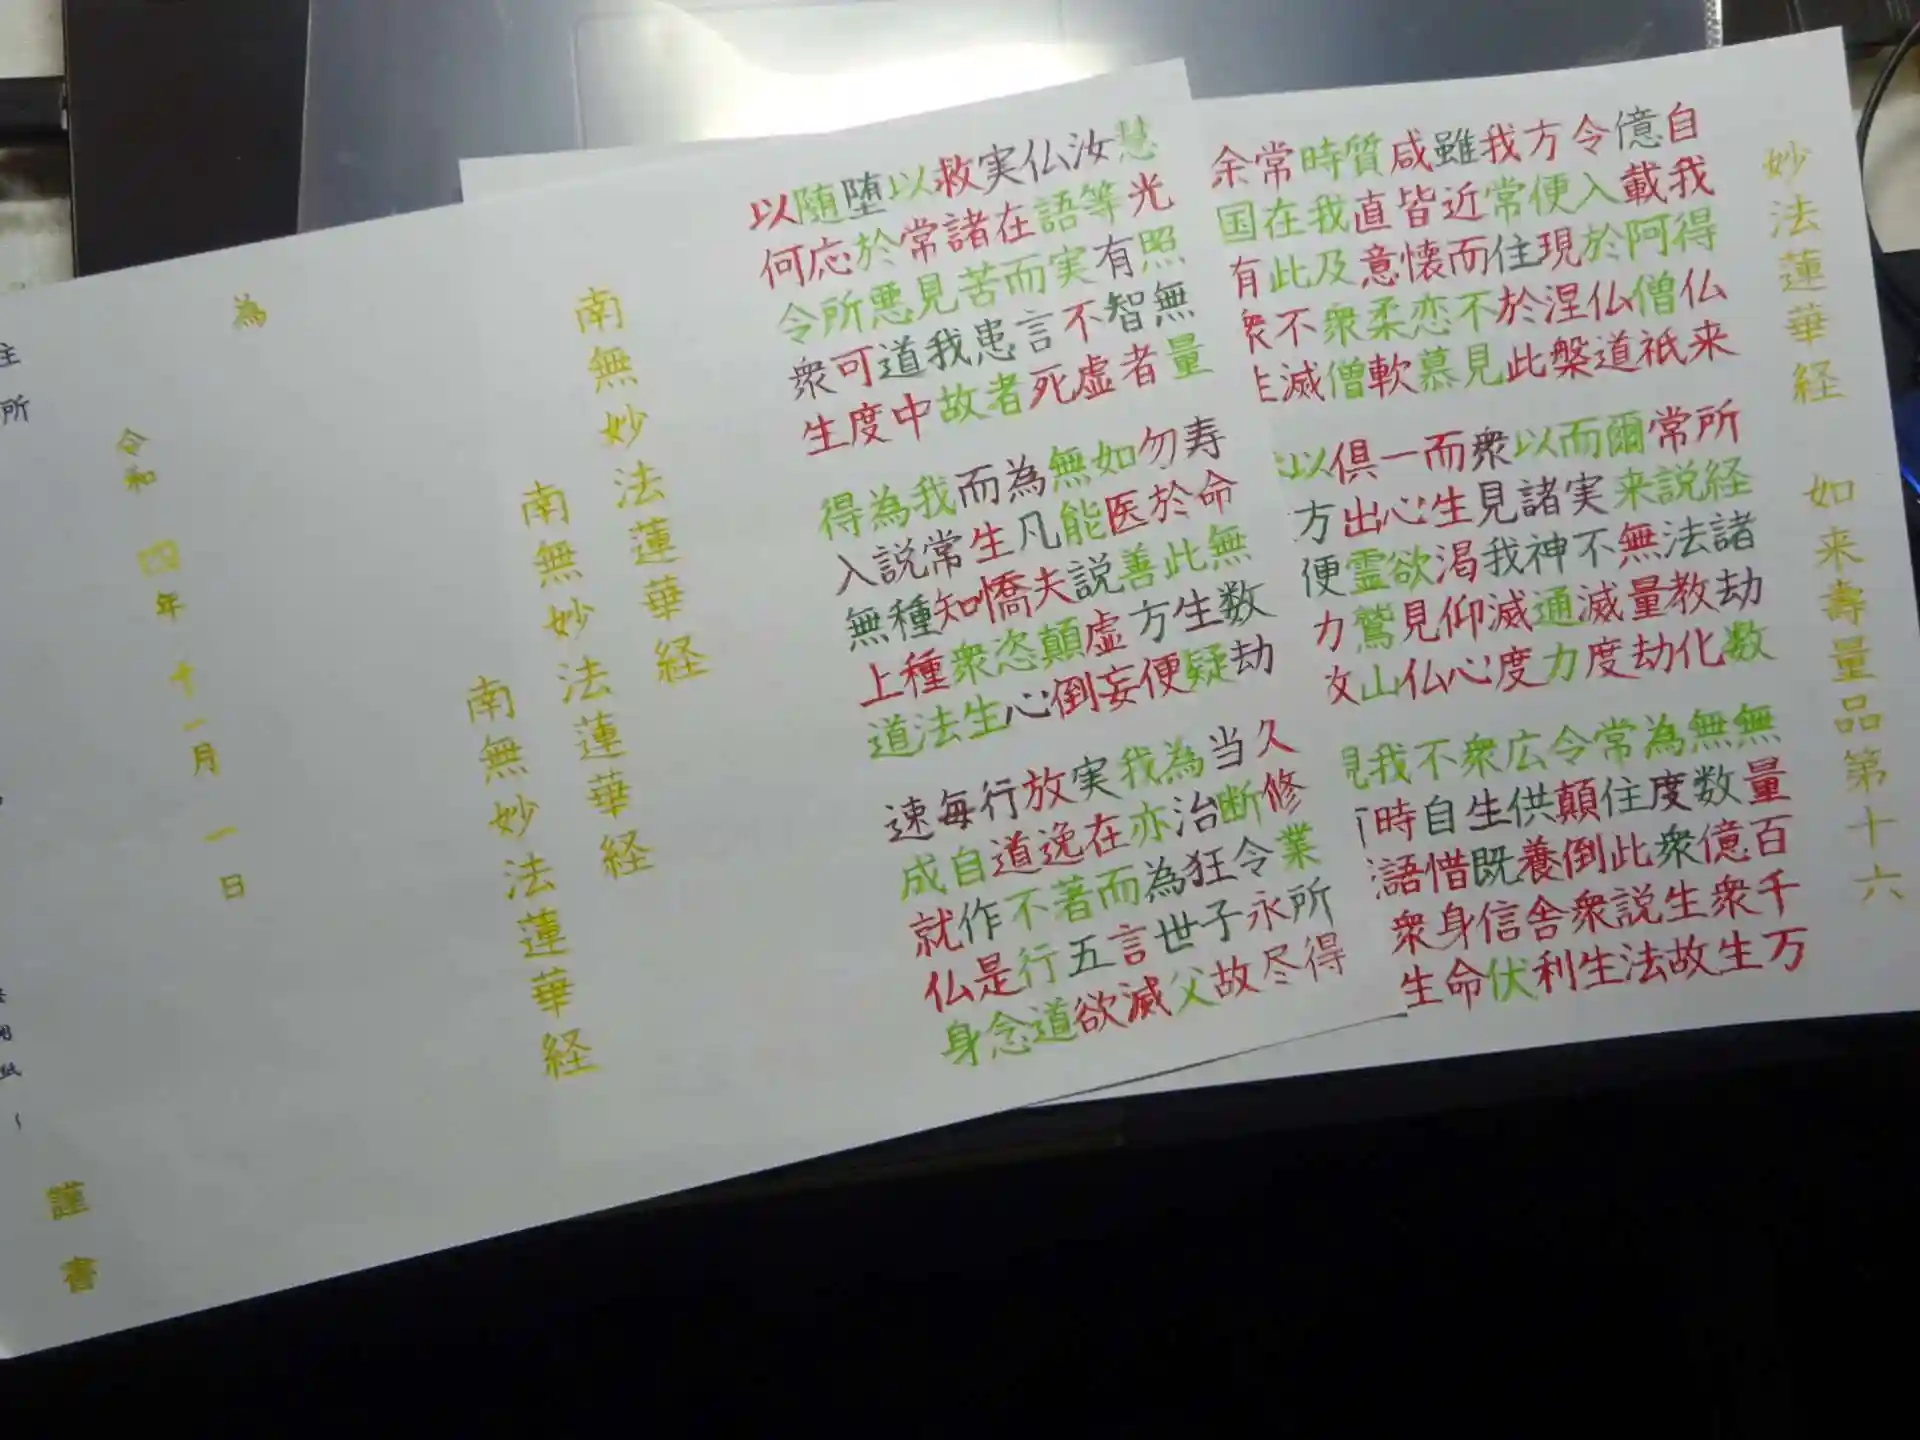 妙法蓮華経 如来壽量品第十六
自我得仏来 所経諸劫数 無量百千万
億載阿僧祇 常説法教化 無数億衆生
令入於仏道 爾来無量劫 為度衆生故
方便現涅槃 而実不滅度 常住此説法
我常住於此 以諸神通力 令顛倒衆生
雖近而不見 衆見我滅度 広供養舎利
咸皆懐恋慕 而生渇仰心 衆生既信伏
質直意柔軟 一心欲見仏 不自惜身命
時我及衆僧 俱出霊鷲山 我時語衆生
常在此不滅 以方便力
余国有衆
慧光照無量 寿命無数劫 久修業所得
汝等有智者 勿於此生疑 当断令永尽
仏語実不虚 如医善方便 為治狂子故
実在而言死 無能説虚妄 我亦為世父
救諸苦患者 為凡夫顛倒 実在而言滅
以常見我故 而生憍恣心 放逸著五欲
堕於悪道中 我常知衆生 行道不行道
随応所可度 為説種種法 毎自作是念
以何令衆生 得入無上道 速成就仏身
南無妙法蓮華経
南無妙法蓮華経
南無妙法蓮華経
為
令和 四年 十一月 一日
謹書
所